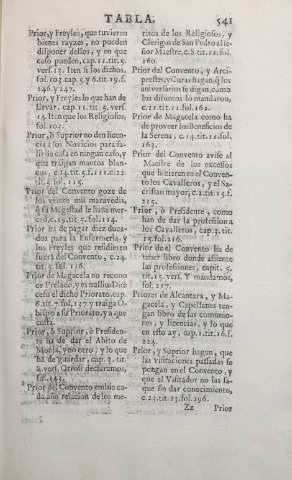 TABLA. 541
Prior, y Freyles, que tuvieren
bienes rayzes, no pueden
disponer dellos, y en que
caso pueden, cap. 11. tit. 5.
vers. 13. Iten si los dichos,
fol. 103. cap. 5. y 6. tit. 15. f.
246. y 247.
Prior, y Freyles lo que han de
llevar, cap. 11. tit. 5. vers.
14. Iten que los Religiosos,
fol. 103.
Prior, ò Suprior no den licen-
cia à los Novicios para sa-
lir de casa en ningun caso, y
que traigan mantos blan-
cos, c. 14. tit. 5. f. 111. c. 22.
tit. 5. fol. 115.
Prior del Convento goze de
los veinte mil maravedis,
q̃ su Magestad le haze mer-
ced, c. 19. tit. 5. fol. 114.
Prior ha de pagar diez duca-
dos para la Enfermeria, y
los Freyles que residieren
fuera del Convento, c. 24.
tit. 5. fol. 116.
Prior de Magacela no recono
ce Prelado, y es nullius Diœ
cesis el dicho Priorato, cap.
8. tit. 7. fol. 127. y traiga O-
bispo à su Priorato, y à que
costa.
Prior, ò Suprior, ò Presiden-
te ha de dar el Abito de
Monja, y no otro, y lo que
ha de guardar, cap. 3. tit.
8. vers. Otrosi declaramos,
fol. 143.
Prior del Convento embie ca-
da año relacion de los me-
ritos de los Religiosos, y
Clerigos de San Pedro al se-
ñor Maestre, c. 8. tit. 11. fol.
160.
Prior del Convento, y Arci-
prestes, y Curas hagan, q̃ los
aniversarios se digan, como
los difuntos lo mandaron,
c. 11. tit. 12. fol. 162.
Prior de Magacela como ha
de proveer los Beneficios de
la Serena, c. 14. tit. 12. fol.
163.
Prior del Convento avise al
Maestre de los excessos
que hizieren en el Conven-
to los Cavalleros, y el Sa-
cristan mayor, c. 21. tit. 15. f.
215.
Prior, ò Presidente, como
han de dar la profession à
los Cavalleros, cap. 3. tit.
15. fol. 216.
Prior de el Convento ha de
tener libro donde assiente
las professiones, capit. 5.
tit. 15. vers. Y mandamos,
fol. 217.
Priores de Alcantara, y Ma-
gacela, y Capellanes ten-
gan libro de las comunio-
nes, y licencias, y lo que
en esto ay, cap. 1. tit. 16. f.
224.
Prior, y Suprior hagan, que
las visitaciones passadas se
pongan en el Convento, y
que el Visitador no las sa-
que sin dar conocimiento,
c. 23. tit. 23. fol. 296.
Zz Prior